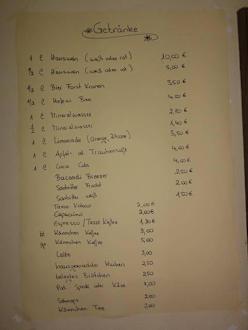 Getränke
1 l Hauswein (weiß oder rot) 10,00 €
1/2 l Hauswein (weiß oder rot) 5,00 €
1/2 l Bier Forst Kronen 3,50 €
1/2 l Hefeweizen Bier 4,00 €
1 l Mineralwasser 2,70 €
1/2 l Mineralwasser 1,40 €
1 l Limonade (Orange, Zitrone) 3,50 €
1 l Apfel- od. Traubensaft 4,00 €
1 l Coca Cola 4,00 €
Bacardi Breezer 2,50 €
Sanbitter Frucht 2,00 €
Sanbitter weiß 1,50 €
Tasse Kakao 2,00 €
Cappuccino 2,00 €
Espresso / Tasse Kaffee 1,30 €
Kännchen Kaffee 3,00
Kännchen Kaffee 5,00
Latte 3,00
hausgemachter Kuchen 2,50
belegtes Brötchen 2,50
Schnaps 2,00
Kännchen Tee 2,00